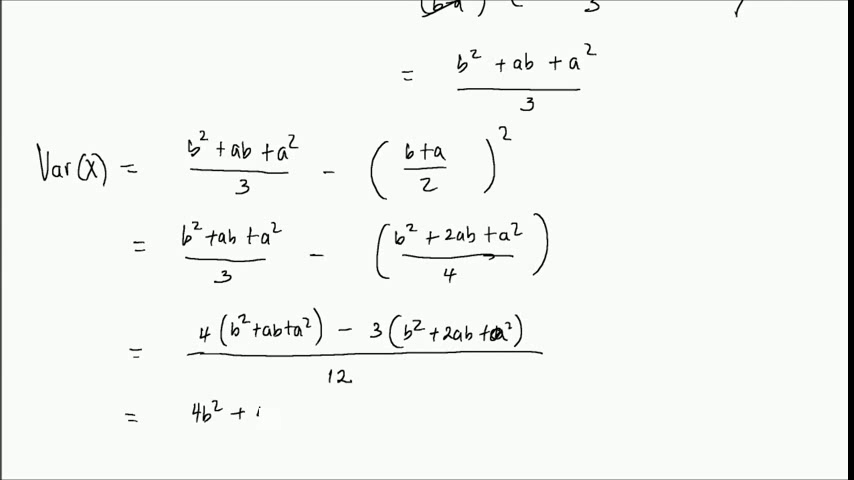 = (b² + ab + a²)/3
Var(X) = (b² + ab + a²)/3 - ((b+a)/2)²
= (b² + ab + a²)/3 - ((b² + 2ab + a²)/4)
= (4(b² + ab + a²) - 3(b² + 2ab + a²))/12
= 4b² +